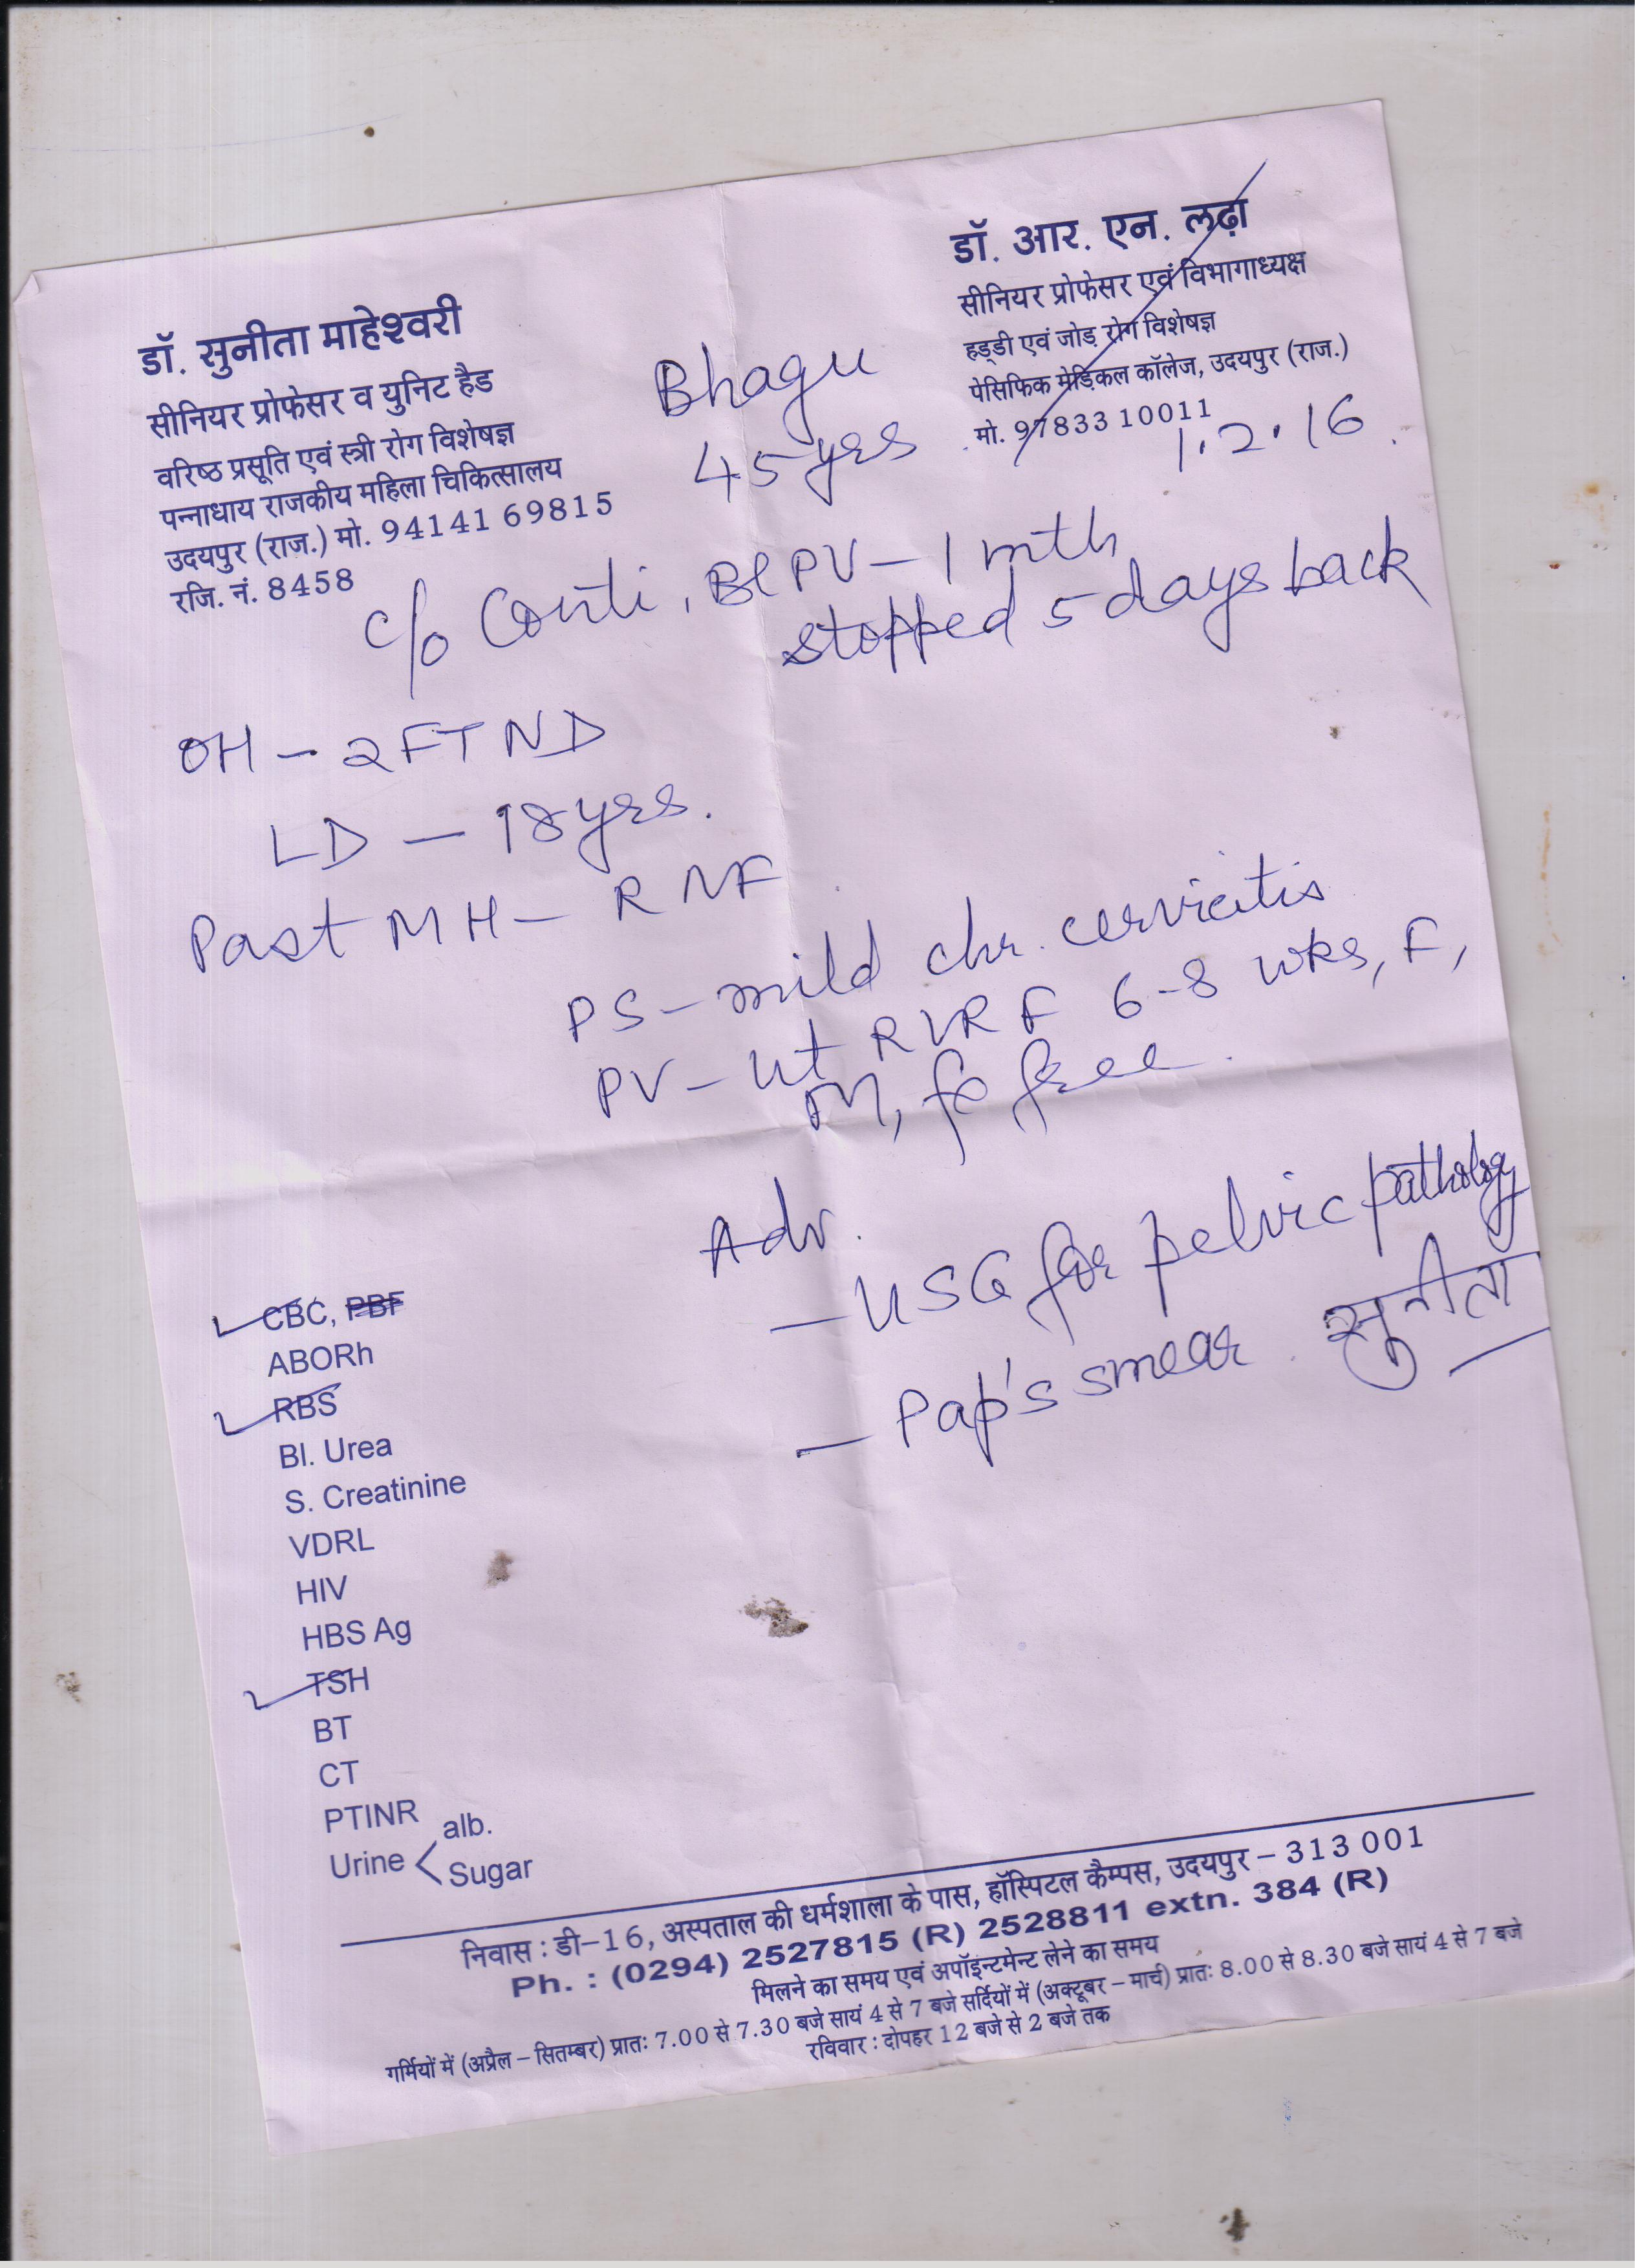 डॉ. सुनीता माहेश्वरी
सीनियर प्रोफेसर व युनिट हैड
वरिष्ठ प्रसूति एवं स्त्री रोग विशेषज्ञ
पन्नाधाय राजकीय महिला चिकित्सालय
उदयपुर (राज.) मो. 94141 69815
रजि. नं. 8458
डॉ. आर. एन. लढ़ा
सीनियर प्रोफेसर एवं विभागाध्यक्ष
हड्डी एवं जोड़ रोग विशेषज्ञ
पेसिफिक मेडिकल कॉलेज, उदयपुर (राज.)
मो. 97833 10011
Bhagu
45 yrs
1.2.16.
c/o Conti, Bl PV - 1 mth
stopped 5 days back
OH - 2 FTND
LD - 18 yrs.
Past MH - R NF
PS - mild chr. cervicitis
PV - Ut RVRF 6-8 wks, F,
M, fx free.
Adv.
- USG for pelvic pathology
- Pap's smear. सुनीता
CBC, PBF
ABORh
RBS
Bl. Urea
S. Creatinine
VDRL
HIV
HBS Ag
TSH
BT
CT
PTINR
Urine < alb.
Sugar
निवास : डी-16, अस्पताल की धर्मशाला के पास, हॉस्पिटल कैम्पस, उदयपुर - 313 001
Ph. : (0294) 2527815 (R) 2528811 extn. 384 (R)
मिलने का समय एवं अपॉइन्टमेन्ट लेने का समय
गर्मियों में (अप्रैल - सितम्बर) प्रातः 7.00 से 7.30 बजे सायं 4 से 7 बजे सर्दियों में (अक्टूबर - मार्च) प्रातः 8.00 से 8.30 बजे सायं 4 से 7 बजे
रविवार : दोपहर 12 बजे से 2 बजे तक